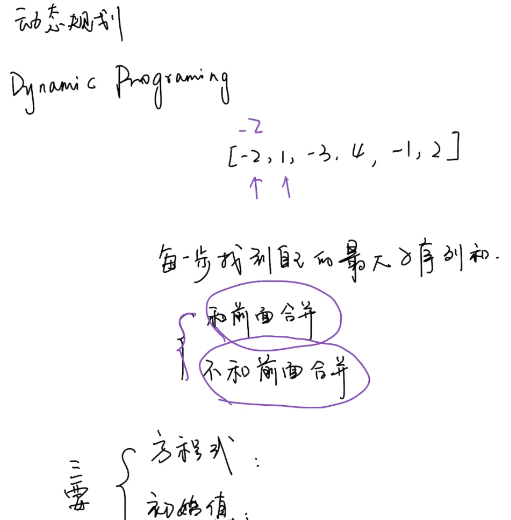 动态规划
Dynamic Programing
-2
[-2, 1, -3, 4, -1, 2]
每一步找到自己的最大子序列和.
和前面合并
不和前面合并
三要
方程式:
初始值: